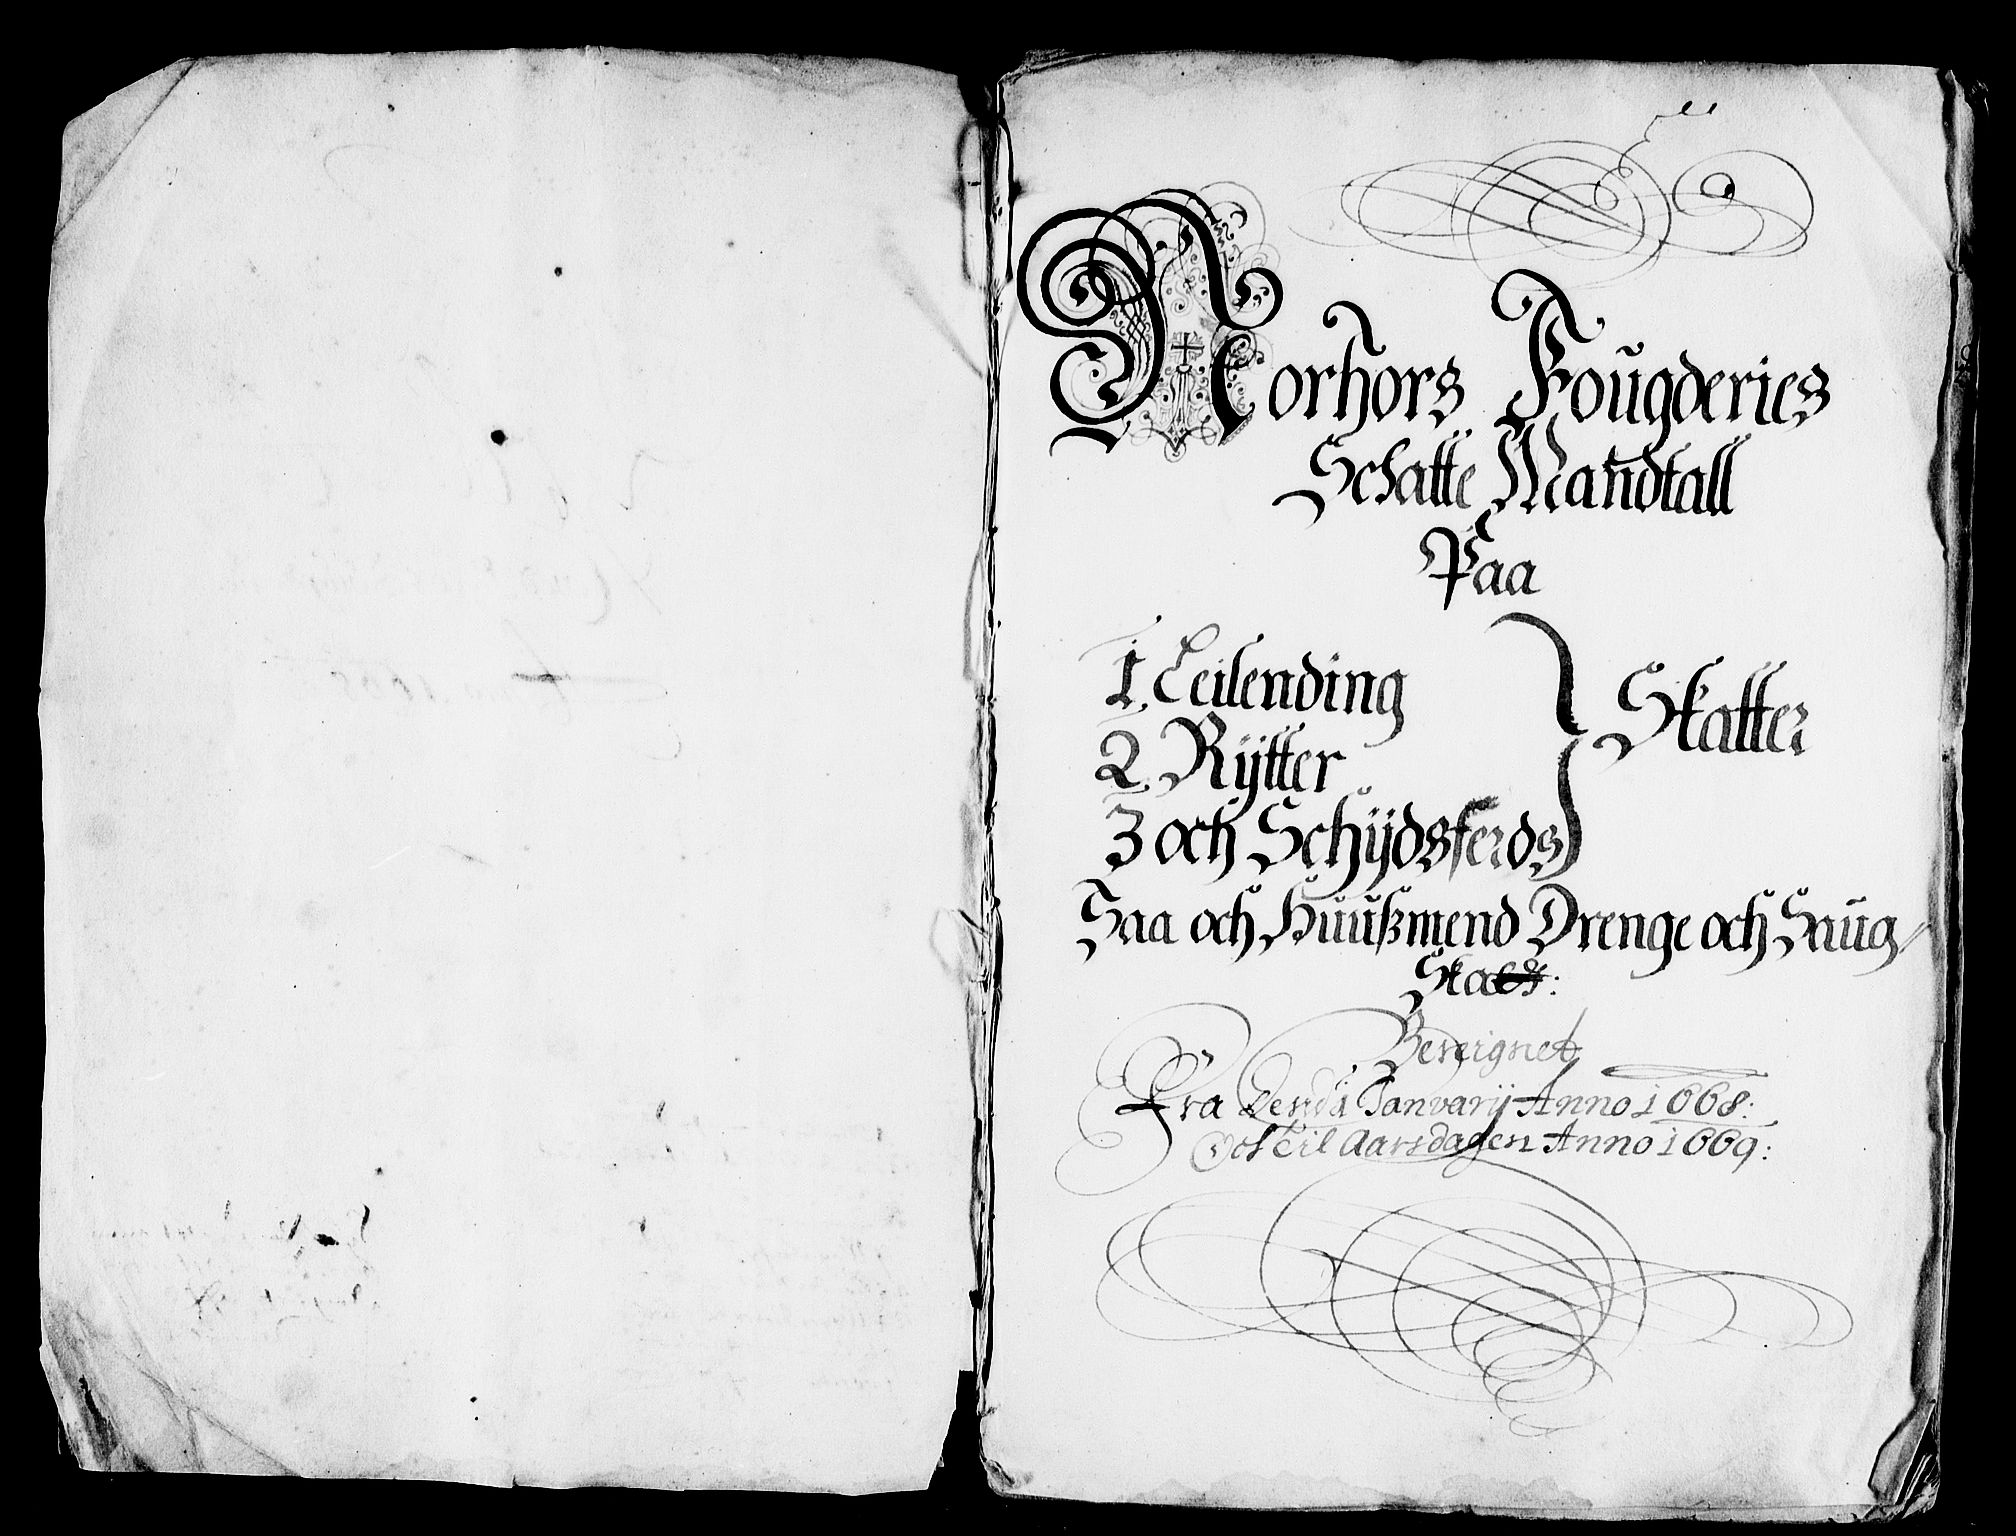 Norhors Fougderies
Schatte Mandtall
Paa
1. Leilending
2. Rÿtter
3 och Schÿdsferds
Skatter
Saa och Huußmend Drenge och Saug
Bereignet
Fra Dend 1 Janvarÿ Anno 1668:
Och til Aarsdagen Anno 1669: